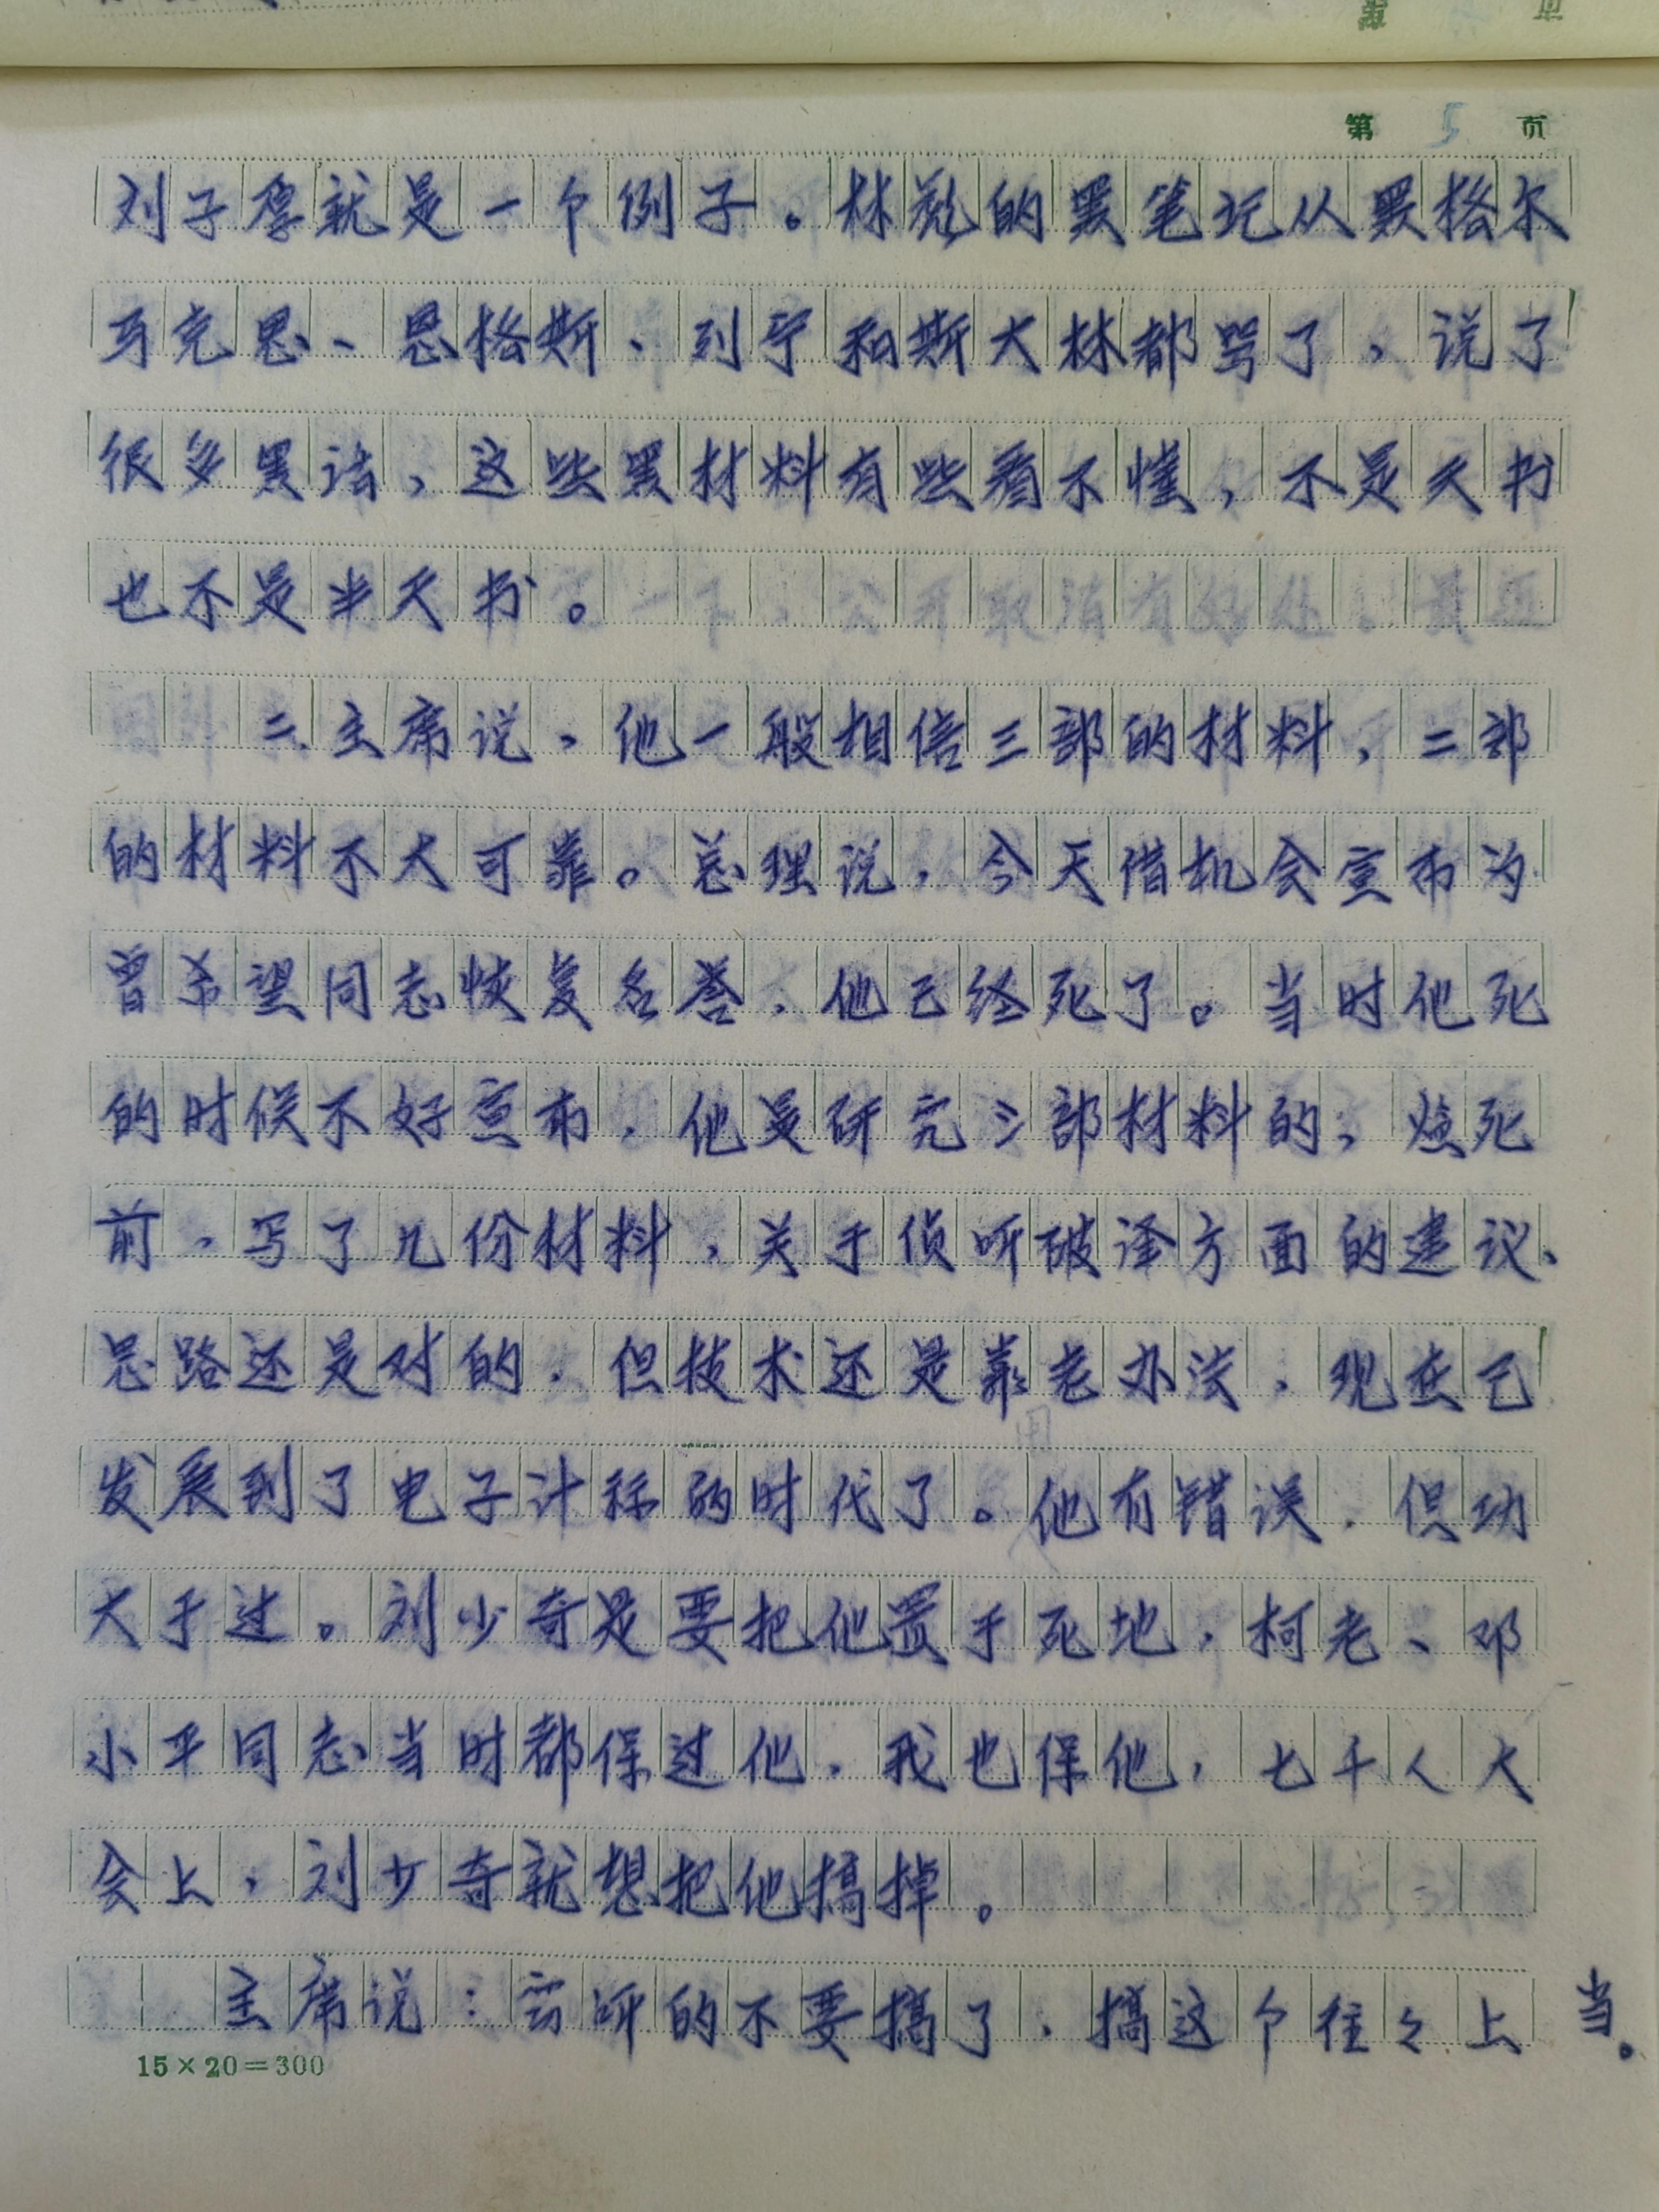 第 5 页
刘子厚就是一个例子。林彪的黑笔记从黑格尔
马克思、恩格斯、列宁和斯大林都骂了,说了
很多黑话,这些黑材料有些看不懂,不是天书
也不是半天书。
二、主席说,他一般相信三部的材料,二部
的材料不大可靠。总理说,今天借机会宣布为
曾希望同志恢复名誉,他已经死了。当时他死
的时候不好宣布,他是研究三部材料的,临死
前,写了几份材料,关于侦听破译方面的建议、
思路还是对的,但技术还是靠老办法,现在已
发展到了电子计祘的时代了。他有错误,但功
大于过。刘少奇是要把他置于死地,柯老、邓
小平同志当时都保过他,我也保他,七千人大
会上,刘少奇就想把他搞掉。
主席说:窃听的不要搞了,搞这个往々上当。
15×20=300